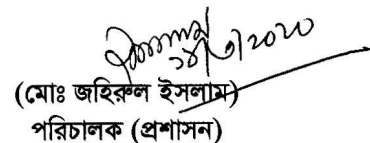 ১৪/৩/২০২০
(মোঃ জহিরুল ইসলাম)
পরিচালক (প্রশাসন)